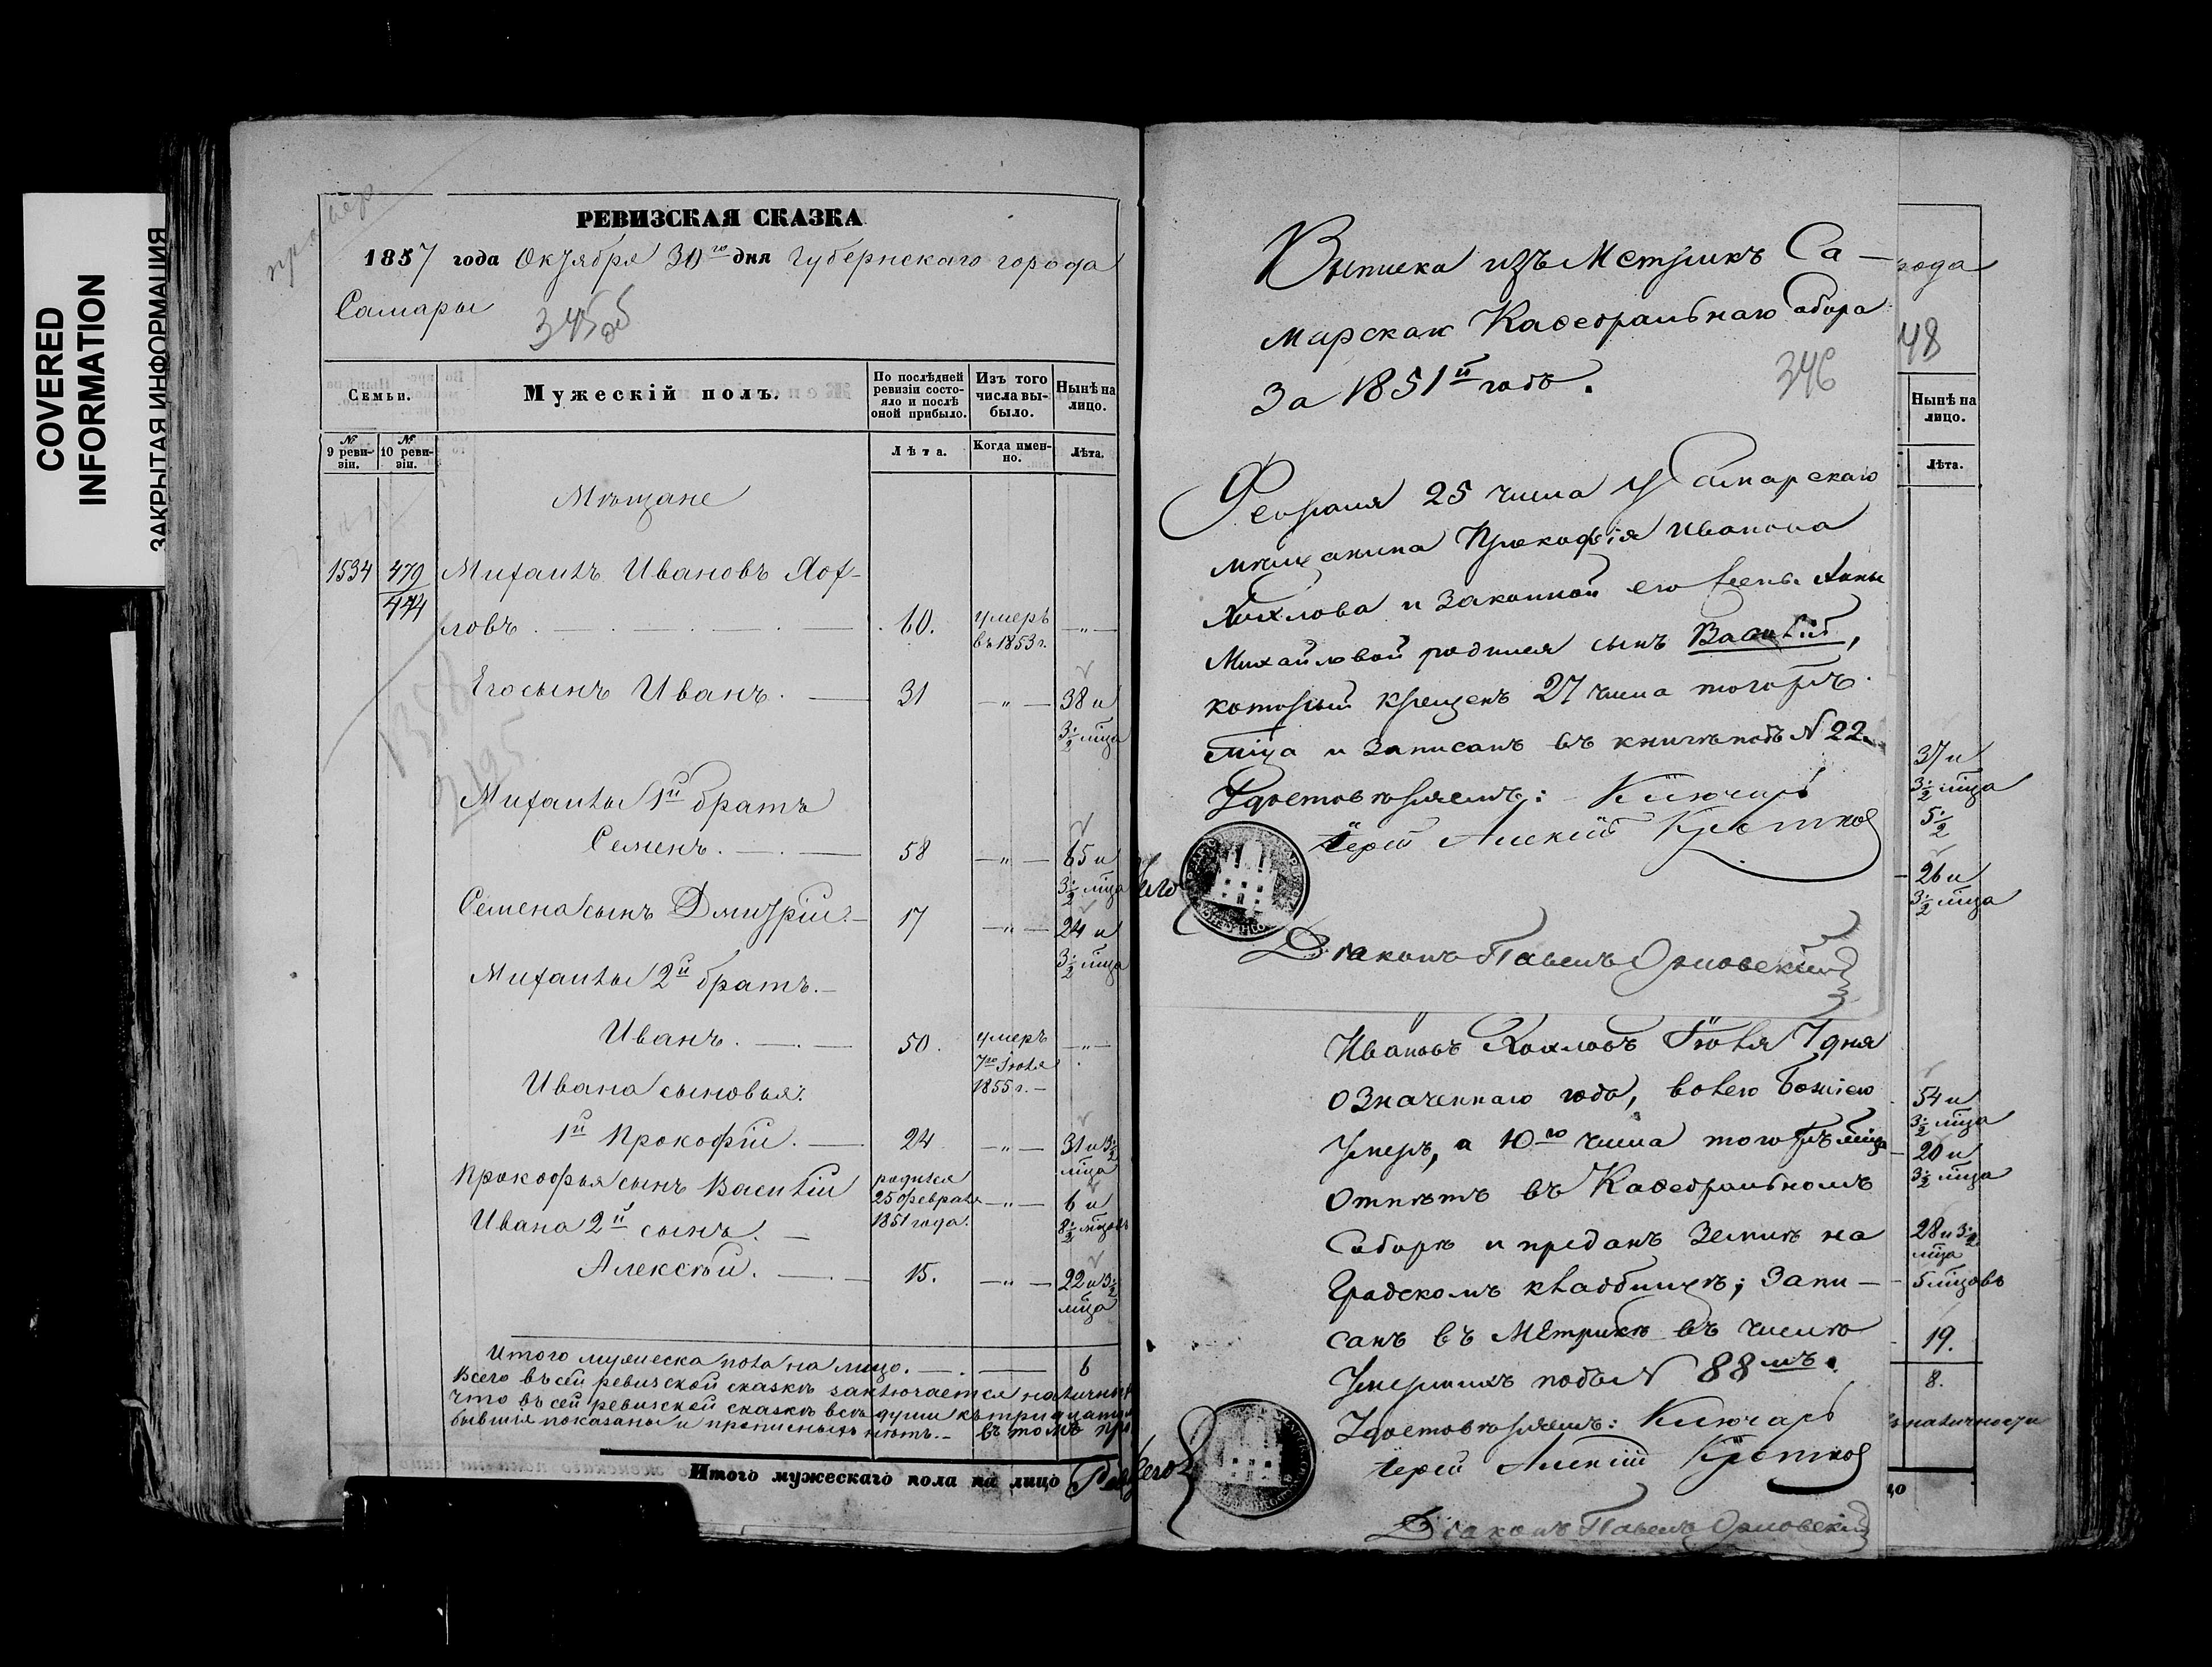 COVERED
INFORMATION
ЗАКРЫТАЯ ИНФОРМАЦИЯ
РЕВИЗСКАЯ СКАЗКА
1857 года Октября 30го дня Губернскаго города
Самары
345об
Семьи.
Мужескій полъ.
По послѣдней ревизіи состояло и послѣ оной прибыло.
Изъ того числа выбыло.
Нынѣ на лицо.
№ 9 ревизіи.
№ 10 ревизіи.
Лѣта.
Когда именно.
Лѣта.
Мѣщане
1534 479 Михаилъ Ивановъ Хох-
474 ловъ. 60. умеръ въ 1853 г. — " —
Его сынъ Иванъ. 31 — " — 38 и 3 1/2 мѣца
Михаилы 1й братъ
Семенъ. 58 — " — 65 и 3 1/2 мѣца
Семена сынъ Дмитрій. 17 — " — 24 и 3 1/2 мѣца
Михаилы 2й братъ.
Иванъ. 50. умеръ 7го Іюля 1855 г. — " —
Ивана сыновья:
1й Прокофій. 24 — " — 31 и 3 1/2 мѣца
Прокофья сынъ Василій родился 25 февраля 1851 года. — " — 6 и 8 1/2 мѣцовъ
Ивана 2й сынъ.
Алексѣй. 15. — " — 22 и 3 1/2 мѣца
Итого мужеска пола на лицо. 6
Всего въ сей ревизской сказкѣ заключается наличныхъ
что въ сей ревизской сказкѣ всѣ души
показаны и прописныхъ нѣтъ.— въ томъ
Итого мужескаго пола на лицо
Выписка изъ Метрикъ Са-
марскаго Каѳедральнаго Собора
346
За 1851й годъ.
Февраля 25 числа у Самарскаго
мѣщанина Прокофія Иванова
Хохлова и законной его жены Анны
Михайловой родился сынъ Василій,
который крещенъ 27 числа тогожъ
мѣца и записанъ въ книгѣ подъ № 22.
Удостовѣряемъ: Ключарь
Іерей Алексій Кротков
Діаконъ Павелъ Орловскій
Ивановъ Хохловъ Іюля 7 дня
означеннаго года, волею Божіею
умеръ, а 10го числа тогожъ мѣца
отпѣтъ въ Каѳедральномъ
Соборѣ и преданъ землѣ на
Градскомъ кладбищѣ; запи-
санъ въ Метрикѣ въ числѣ
умершихъ подъ № 88мъ.
Удостовѣряемъ: Ключарь
Іерей Алексій Кротков
Діаконъ Павелъ Орловскій
рода
48
Нынѣ на лицо.
Лѣта.
37 и
3 1/2 мѣца
5 1/2
26 и
3 1/2 мѣца
54 и
3 1/2 мѣца
20 и
3 1/2 мѣца
28 и 3 1/2
мѣца
5 мѣцовъ
19.
8.
наличности